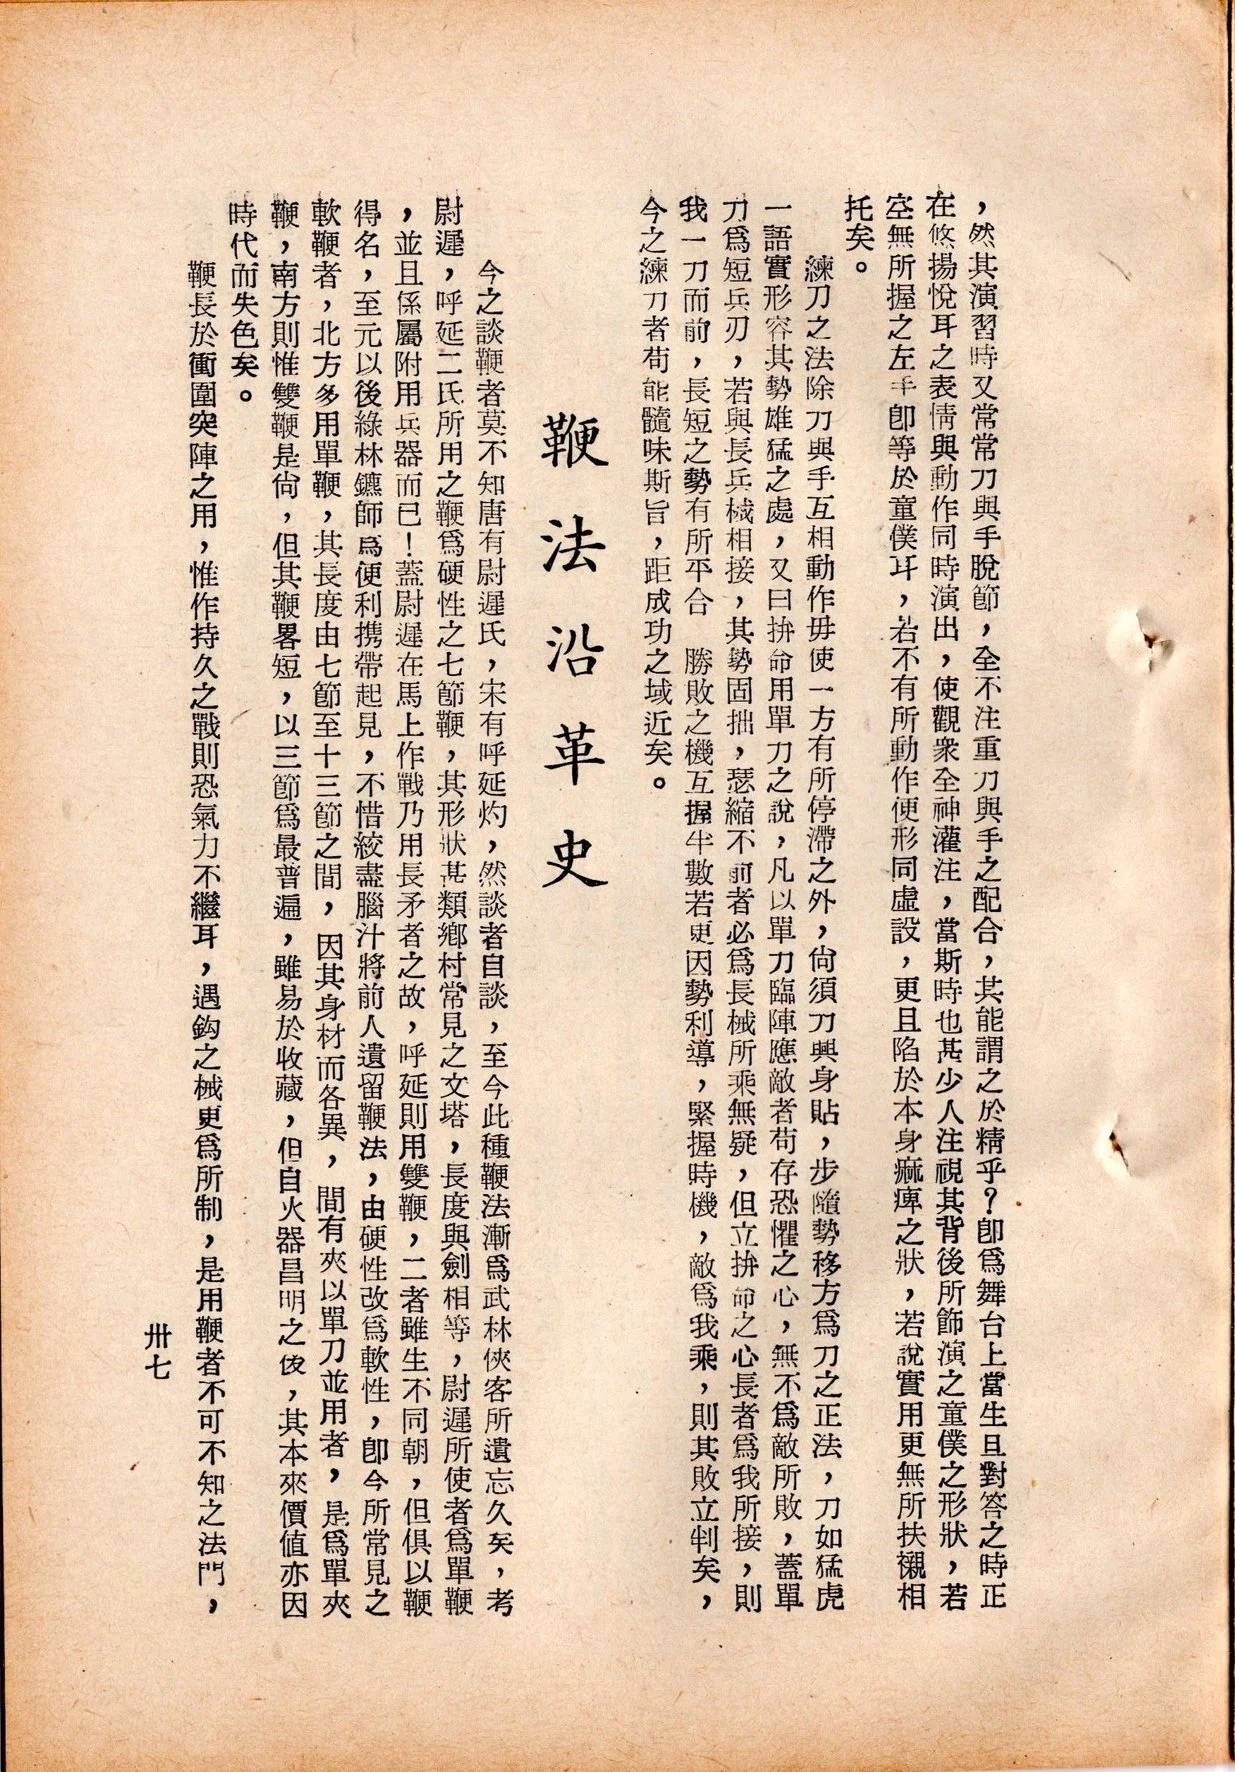 ，然其演習時又常常刀與手脫節，全不注重刀與手之配合，其能謂之於精乎？卽爲舞台上當生旦對答之時正
在悠揚悅耳之表情與動作同時演出，使觀衆全神灌注，當斯時也甚少人注視其背後所飾演之童僕之形狀，若
空無所握之左手卽等於童僕耳，若不有所動作便形同虛設，更且陷於本身痲痺之狀，若說實用更無所扶襯相
托矣。
練刀之法除刀與手互相動作毋使一方有所停滯之外，尙須刀興身貼，步隨勢移方爲刀之正法，刀如猛虎
一語實形容其勢雄猛之處，又曰拚命用單刀之說，凡以單刀臨陣應敵者苟存恐懼之心，無不爲敵所敗，蓋單
刀爲短兵刃，若與長兵械相接，其勢固拙，瑟縮不前者必爲長械所乘無疑，但立拚命之心長者爲我所接，則
我一刀而前，長短之勢有所平合　勝敗之機互握半數若更因勢利導，緊握時機，敵爲我乘，則其敗立判矣，
今之練刀者苟能髓味斯旨，距成功之域近矣。
鞭法沿革史
今之談鞭者莫不知唐有尉遲氏，宋有呼延灼，然談者自談，至今此種鞭法漸爲武林俠客所遺忘久矣，考
尉遲，呼延二氏所用之鞭爲硬性之七節鞭，其形狀甚類鄉村常見之文塔，長度與劍相等，尉遲所使者爲單鞭
，並且係屬附用兵器而已！蓋尉遲在馬上作戰乃用長矛者之故，呼延則用雙鞭，二者雖生不同朝，但俱以鞭
得名，至元以後綠林鑣師爲便利携帶起見，不惜絞盡腦汁將前人遺留鞭法，由硬性改爲軟性，卽今所常見之
軟鞭者，北方多用單鞭，其長度由七節至十三節之間，因其身材而各異，間有夾以單刀並用者，是爲單夾
鞭，南方則惟雙鞭是尙，但其鞭畧短，以三節爲最普遍，雖易於收藏，但自火器昌明之後，其本來價值亦因
時代而失色矣。
鞭長於衝圍突陣之用，惟作持久之戰則恐氣力不繼耳，遇鈎之械更爲所制，是用鞭者不可不知之法門，
卅七